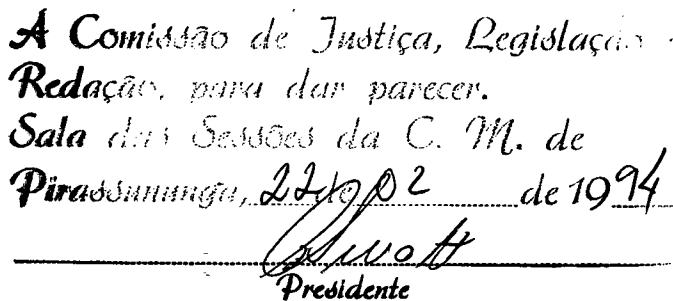 À Comissão de Justiça, Legislação
Redação, para dar parecer.
Sala das Sessões da C. M. de
Pirassununga, 22 de 02 de 1994
Presidente